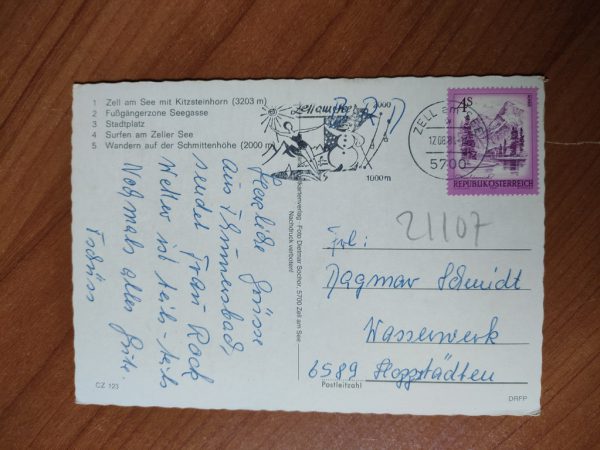 1 Zell am See mit Kitzsteinhorn (3203 m)
2 Fußgängerzone Seegasse
3 Stadtplatz
4 Surfen am Zeller See
5 Wandern auf der Schmittenhöhe (2000 m)
Herzliche Grüsse
aus
sendet Frau Rock
Wetter ist teils-teils
Nochmals alles Gute.
Tschüss
CZ 123
Foto Dietmar Sochor, 5700 Zell am See
Nachdruck verboten!
Zell am See
2000
1000 m
ZELL am SEE
5700
4S
REPUBLIK ÖSTERREICH
21107
Frl:
Dagmar Schmidt
Wasserwerk
6589 Hoppstädten
Postleitzahl
DRFP